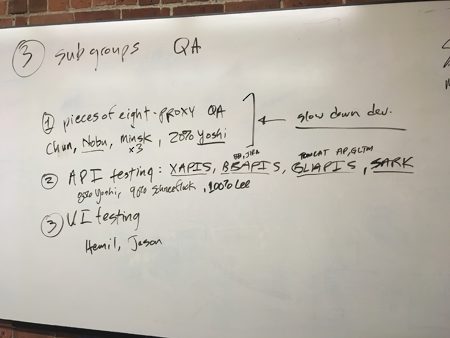 ③ subgroups QA
① pieces of eight - PROXY QA
Chun, Nobu, minsk x3, 20% Yoshi
← slow down dev.
② API testing: XAPIS, BBAPIS, GLIAPIS, SARK
80% Yoshi, 100% Lee
③ UI testing
Hemil, Jason